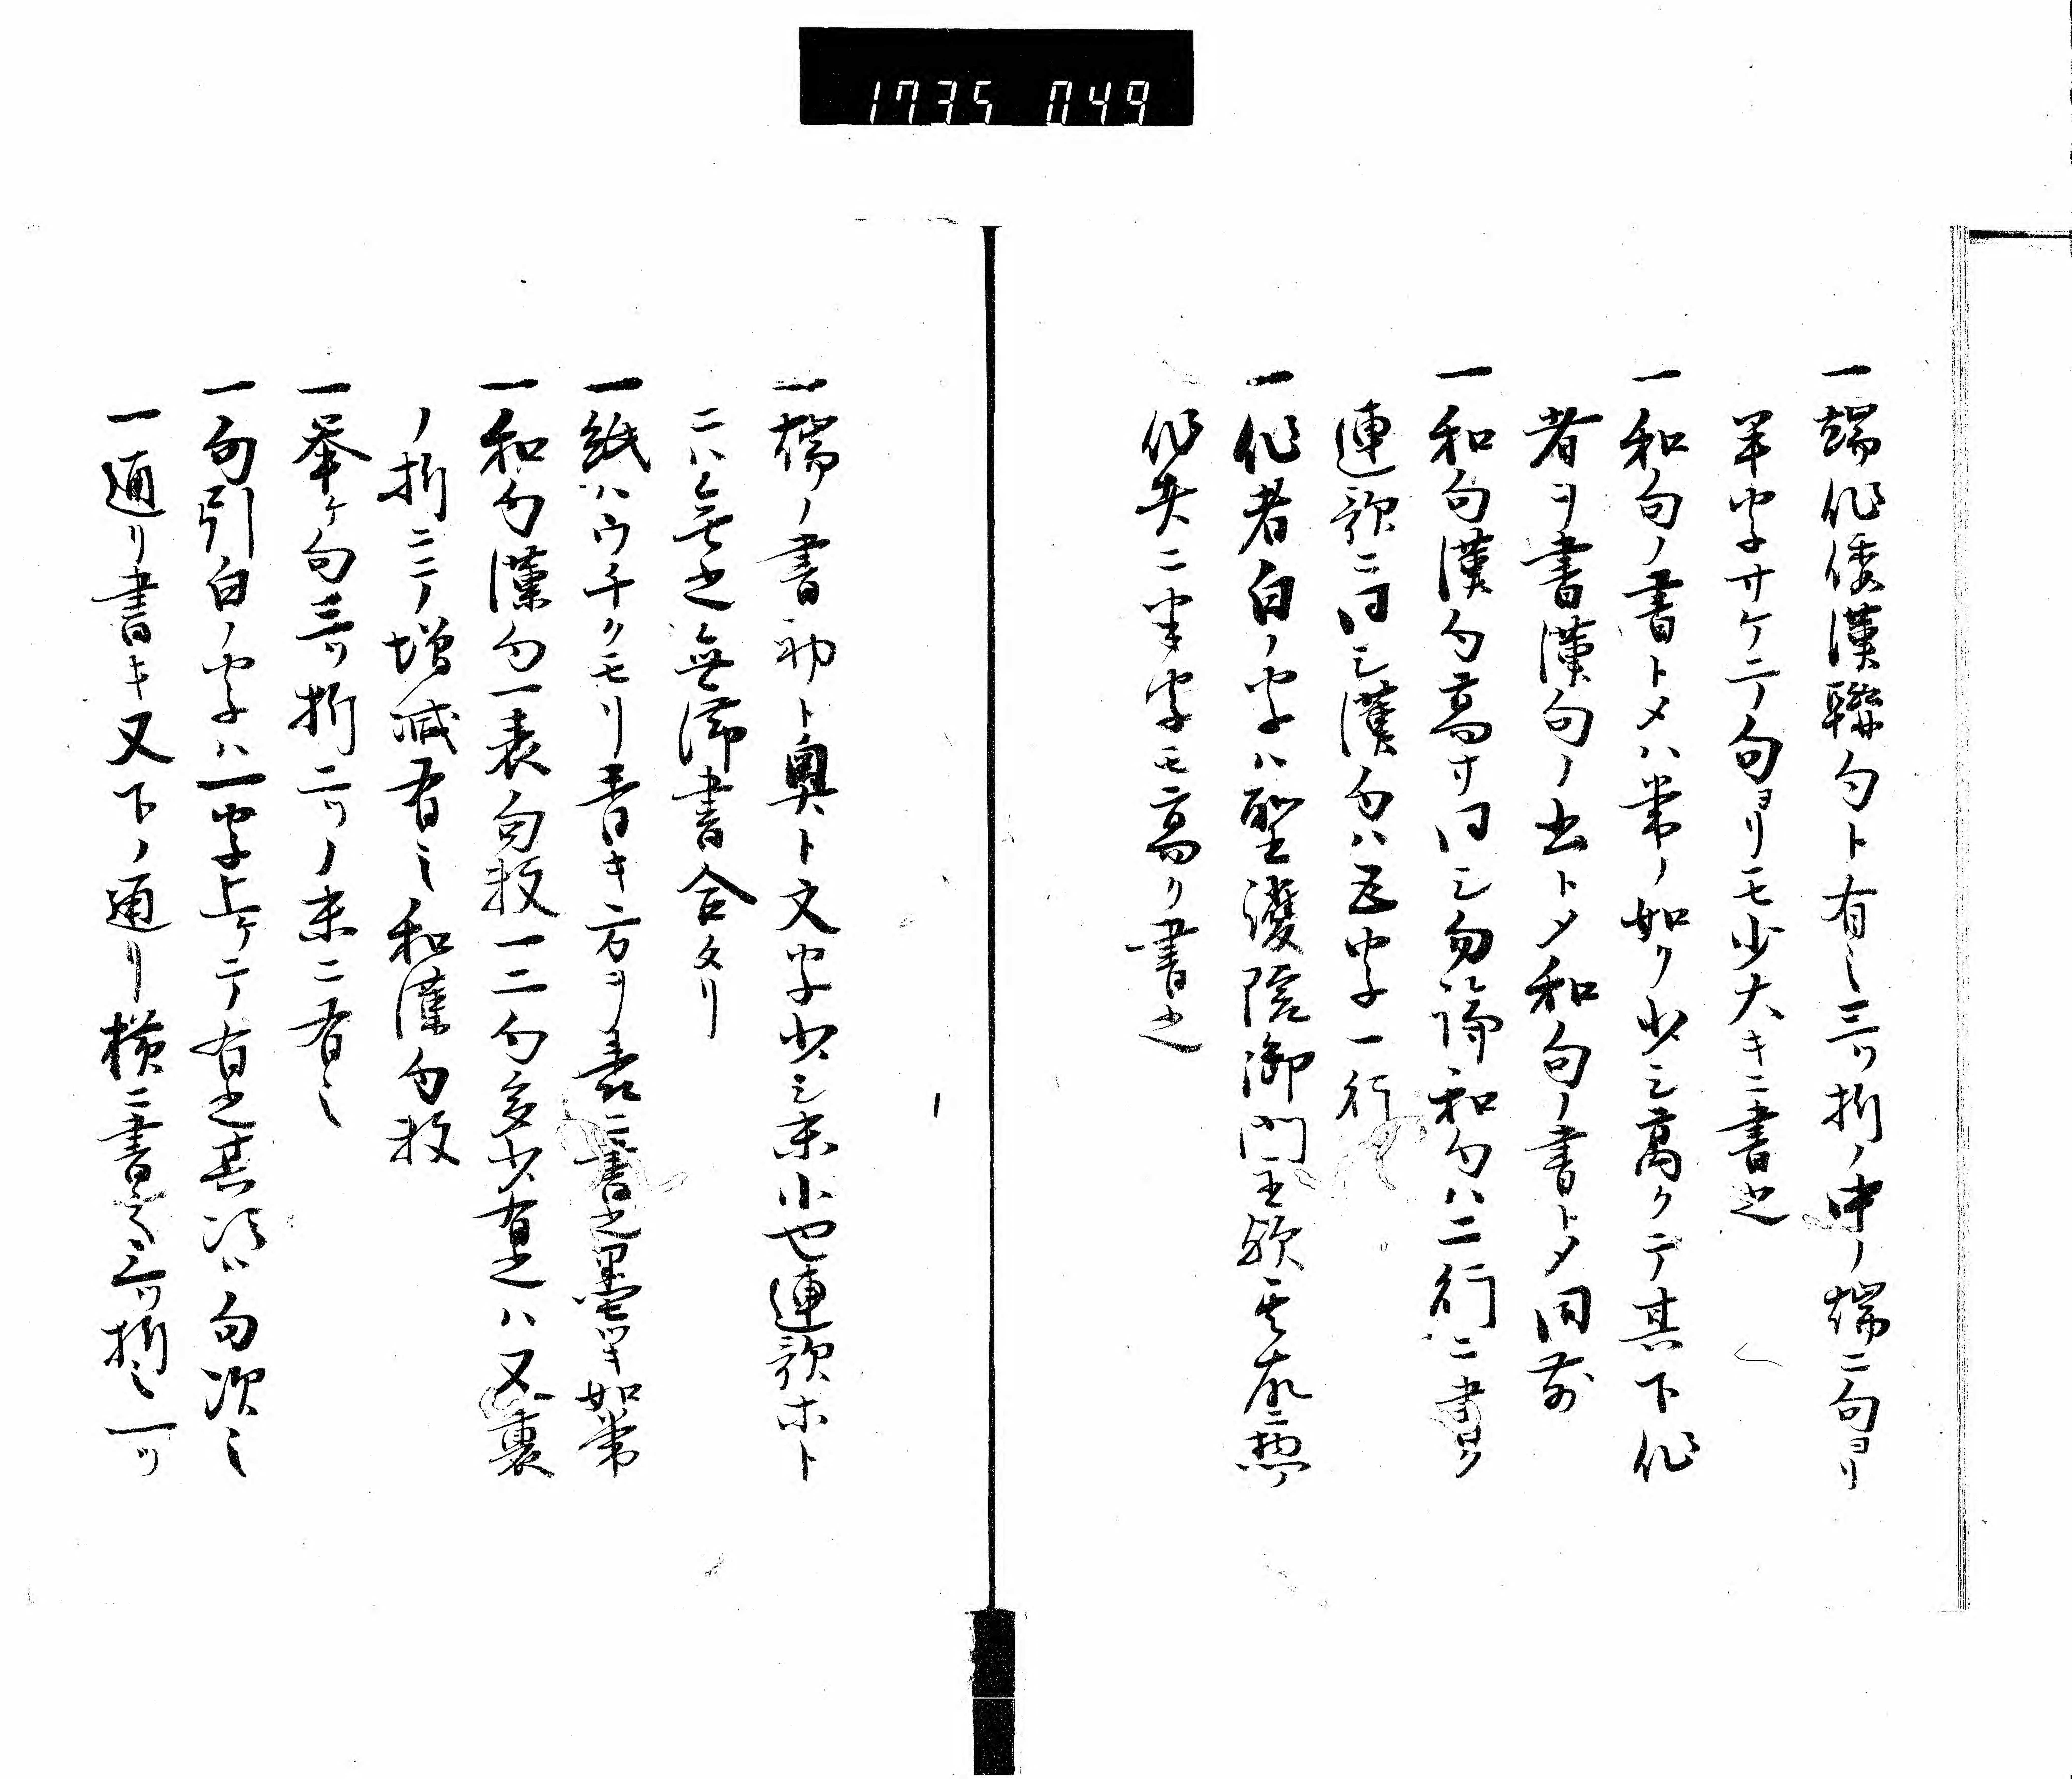 1735 049
一端作倭漢聯句ト有之三ツ折ノ中ノ端ニ句ヨリ
半字サケテ句ヨリモ少大キニ書之
一和句ノ書トメハ常ノ如ク少シ高クテ其下作
者ヲ書漢句ノ書トメ和句ノ書トメ同前
一和句漢句高サ同シ勿論和句ハ二行ニ書ク
連歌ニ同シ漢句ハ五字一行
一作者白ノ字ハ聖護院御門主
作者ニ半字モ高ク書之
一端ノ書初ト奥ト文字少シ末小也連歌ホト
ニハ無之無滞書合タリ
一紙ハウチクモリ青キ方ヲ表ニ書之墨ツキ如常
一和句漢句一表句数一二句多少有之ハ又裏
ノ折ニテノ増減有之和漢句数
一挙ケ句三ツ折二ツノ末ニ有之
一句引白ノ字ハ一字上ケテ有之其次ハ句次之
一通リ書キ又下ノ通リ横ニ書之三ツ折之一ツ